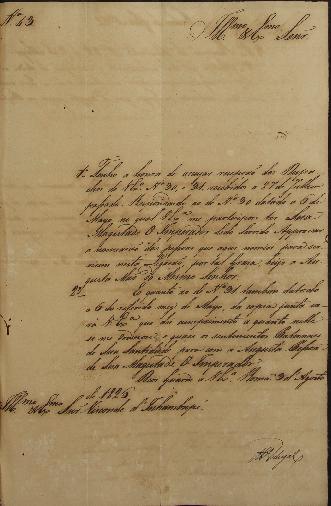 Nº 43
Illmo e Exmo Senr
1º Tenho a honra de accuzar recepção dos Despa-
chos de V. Exª Nº 30, e 31, recebidos a 27 de
passado. Respondendo ao de Nº 30 datado a 6 de
Mayo, no qual V. Exª me participa ter Sua
Magestade O Imperador sido servido Approvar
a nomeação das pessoas que
por tal graça, beijo a Au-
gusta Mão do Mesmo Senhor.
2º E quanto ao de Nº 31 tambem datado
a 6 do referido mez de Mayo,
a V. Exª que dei cumprimento a quanto nelle
se me ordenava, e quaes os sentimentos
de Sua Santidade para com a Augusta Pessoa
de Sua Magestade O Imperador.
Deos Guarde a V. Exª. Roma 3 d'Agosto
de 1825
Illmo e Exmo Snr Visconde d'Inhambupe.